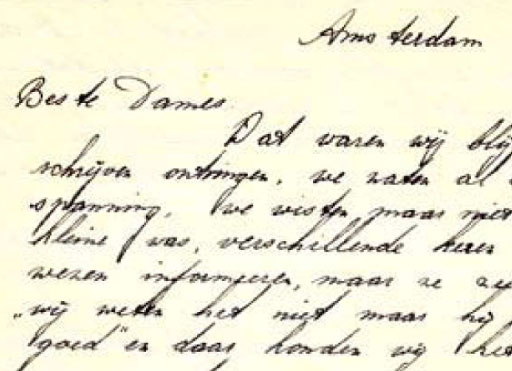 Amsterdam
Beste Dames
Dat waren wij blij
schrijven ontvingen, we zaten al
spanning, we wisten maar niet
kleine was, verschillende keren
wezen informeeren, maar ze
„wij weten het niet maar hij
goed" en daar konden wij het